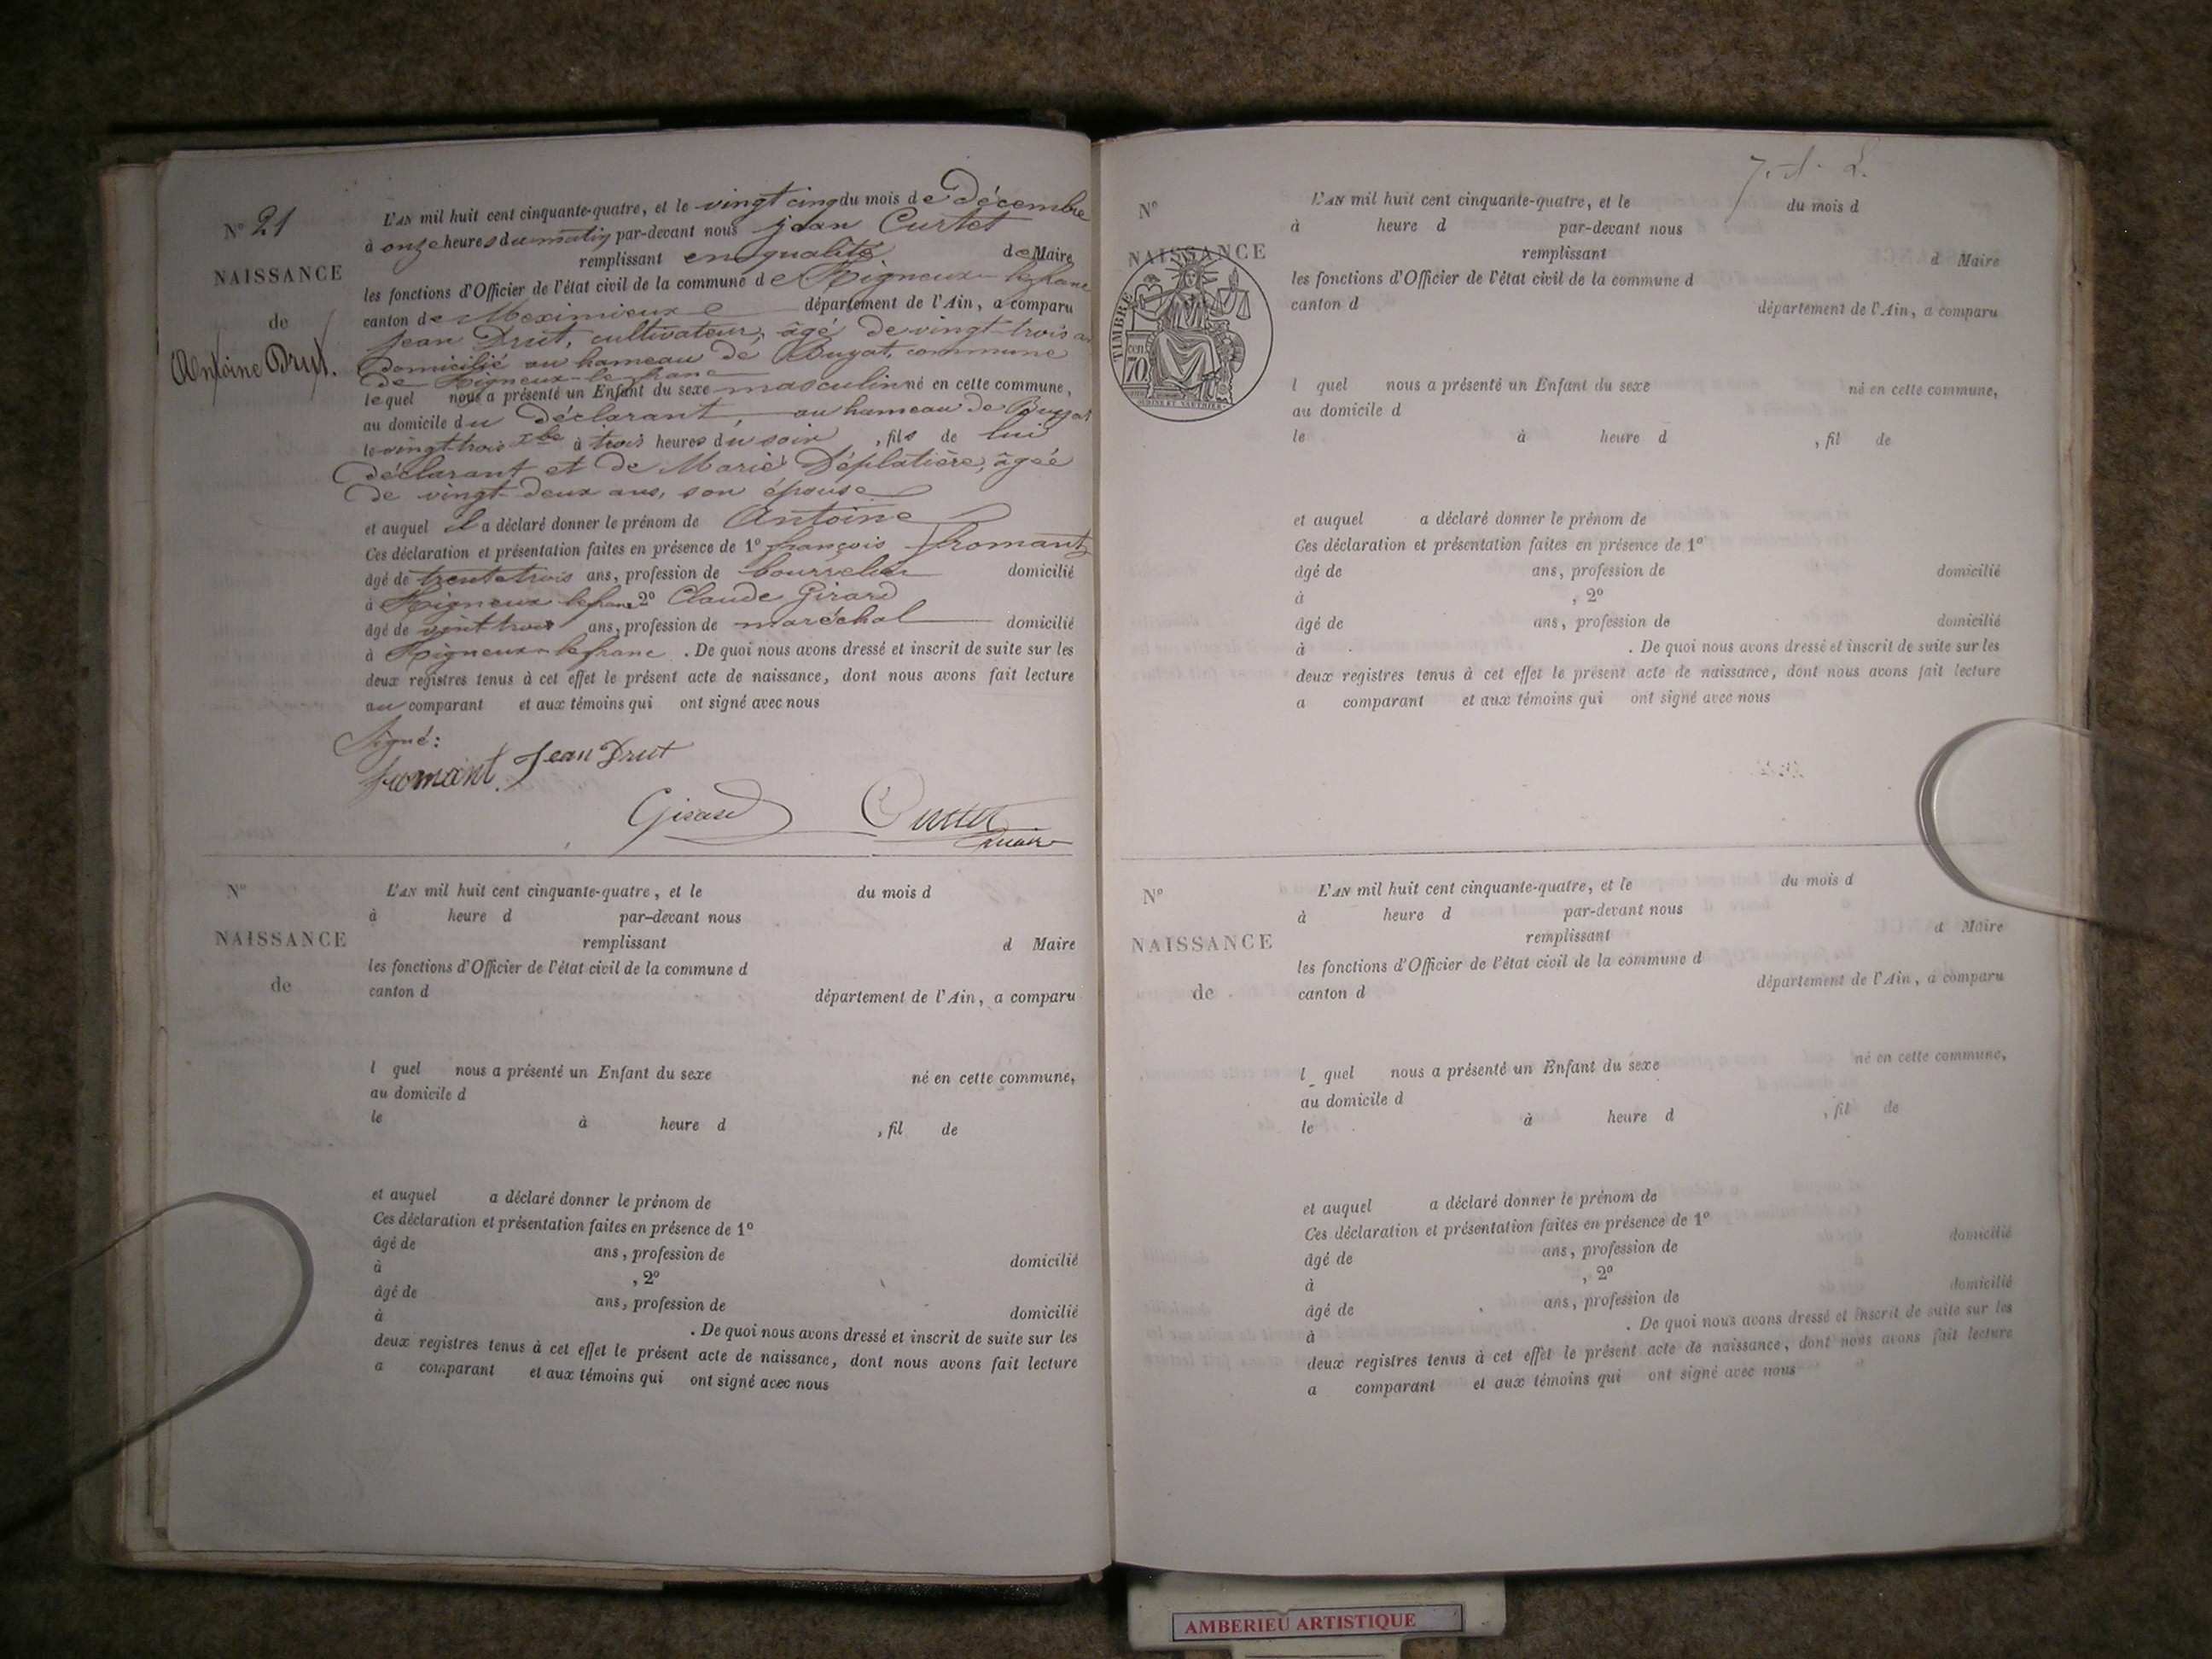 N° 21
NAISSANCE
de
Antoine Drut.
L'AN mil huit cent cinquante-quatre, et le vingt cinq du mois de Décembre
à onze heures du matin par-devant nous jean Curtet
remplissant en qualité de Maire
les fonctions d'Officier de l'état civil de la commune de Rigneux-le franc
canton de Meximieux département de l'Ain, a comparu
Jean Drut, cultivateur, âgé de vingt-trois
Domicilié au hameau de Bugat, commune
de Rigneux-le-franc
lequel nous a présenté un Enfant du sexe masculin né en cette commune,
au domicile du déclarant, au hameau de Bugat
le vingt-trois xbre à trois heures du soir, fils de lui
déclarant et de Marie Déplatière, âgée
de vingt deux ans, son épouse
et auquel il a déclaré donner le prénom de Antoine
Ces déclaration et présentation faites en présence de 1° françois fromant
âgé de trente trois ans, profession de bourrelier domicilié
à Rigneux le franc 2° Claude Girard
âgé de vint trois ans, profession de maréchal domicilié
à Rigneux-le franc. De quoi nous avons dressé et inscrit de suite sur les
deux registres tenus à cet effet le présent acte de naissance, dont nous avons fait lecture
au comparant et aux témoins qui ont signé avec nous
Signé:
fromant. Jean Drut
Girard Curtet
maire
N°
NAISSANCE
de
L'AN mil huit cent cinquante-quatre, et le du mois d
à heure d par-devant nous
remplissant d Maire
les fonctions d'Officier de l'état civil de la commune d
canton d département de l'Ain, a comparu
l quel nous a présenté un Enfant du sexe né en cette commune,
au domicile d
le à heure d , fil de
et auquel a déclaré donner le prénom de
Ces déclaration et présentation faites en présence de 1°
âgé de ans, profession de domicilié
à , 2°
âgé de ans, profession de domicilié
à . De quoi nous avons dressé et inscrit de suite sur les
deux registres tenus à cet effet le présent acte de naissance, dont nous avons fait lecture
a comparant et aux témoins qui ont signé avec nous
N°
NAISSANCE
TIMBRE
70 cen
L'AN mil huit cent cinquante-quatre, et le du mois d
à heure d par-devant nous
remplissant d Maire
les fonctions d'Officier de l'état civil de la commune d
canton d département de l'Ain, a comparu
l quel nous a présenté un Enfant du sexe né en cette commune,
au domicile d
le à heure d , fil de
et auquel a déclaré donner le prénom de
Ces déclaration et présentation faites en présence de 1°
âgé de ans, profession de domicilié
à , 2°
âgé de ans, profession de domicilié
à . De quoi nous avons dressé et inscrit de suite sur les
deux registres tenus à cet effet le présent acte de naissance, dont nous avons fait lecture
a comparant et aux témoins qui ont signé avec nous
N°
NAISSANCE
de
L'AN mil huit cent cinquante-quatre, et le du mois d
à heure d par-devant nous
remplissant d Maire
les fonctions d'Officier de l'état civil de la commune d
canton d département de l'Ain, a comparu
l quel nous a présenté un Enfant du sexe né en cette commune,
au domicile d
le à heure d , fil de
et auquel a déclaré donner le prénom de
Ces déclaration et présentation faites en présence de 1°
âgé de ans, profession de domicilié
à , 2°
âgé de ans, profession de domicilié
à . De quoi nous avons dressé et inscrit de suite sur les
deux registres tenus à cet effet le présent acte de naissance, dont nous avons fait lecture
a comparant et aux témoins qui ont signé avec nous
AMBERIEU ARTISTIQUE